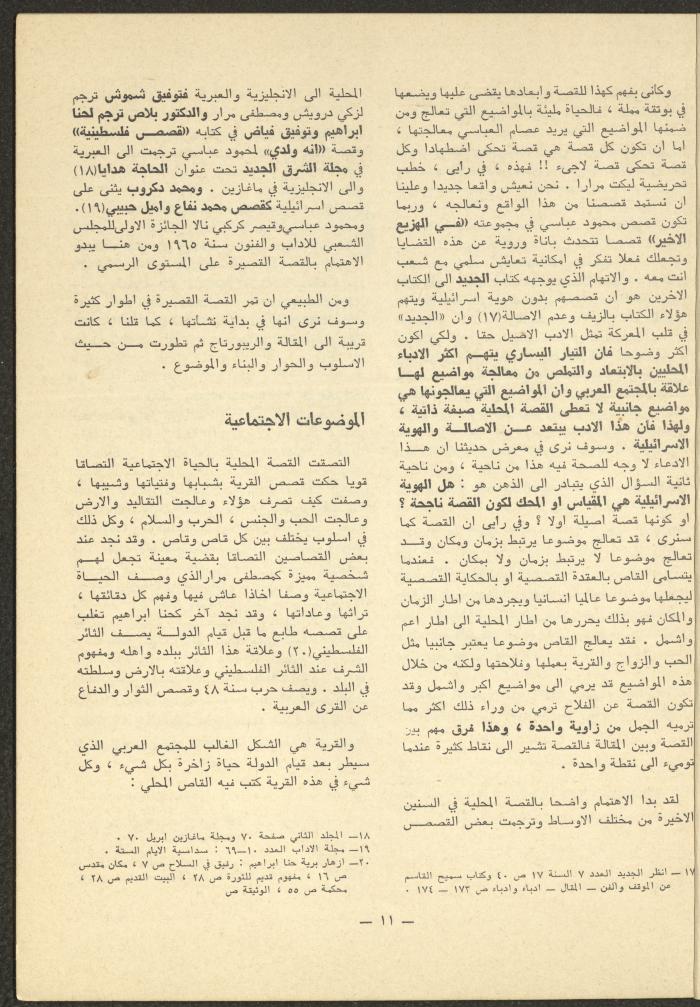 وكأنى بفهم كهذا للقصة وابعادها يقضى عليها ويضعها
في بوتقة مملة ، فالحياة مليئة بالمواضيع التي تعالج ومن
ضمنها المواضيع التي يريد عصام العباسي معالجتها ،
اما ان تكون كل قصة هي قصة تحكى اضطهادا وكل
قصة تحكى قصة لاجىء !! فهذه ، في رايى ، خطب
تحريضية ليكت مرارا . نحن نعيش واقعا جديدا وعلينا
ان نستمد قصصنا من هذا الواقع ونعالجه ، وربما
تكون قصص محمود عباسي في مجموعته «فـــي الهزيع
الاخير» قصصا تتحدث باناة وروية عن هذه القضايا
وتجعلك فعلا تفكر في امكانية تعايش سلمي مع شعب
انت معه . والاتهام الذي يوجهه كتاب الجديد الى الكتاب
الاخرين هو ان قصصهم بدون هوية اسرائيلية ويتهم
هؤلاء الكتاب بالزيف وعدم الاصالة(١٧) وان «الجديد»
في قلب المعركة تمثل الادب الاصيل حقا . ولكي اكون
اكثر وضوحا فان التيار اليساري يتهــم اكثر الادباء
المحليين بالابتعاد والتملص من معالجة مواضيع لهــا
علاقة بالمجتمع العربي وان المواضيع التي يعالجونها هي
مواضيع جانبية لا تعطى القصة المحلية صبغة ذاتية ،
ولهذا فان هذا الادب يبتعد عـــن الاصالـــة والهوية
الاسرائيلية . وسوف نرى في معرض حديثنا ان هـــذا
الادعاء لا وجه للصحة فيه هذا من ناحية ، ومن ناحية
ثانية السؤال الذي يتبادر الى الذهن هو : هل الهوية
الاسرائيلية هي المقياس او المحك لكون القصة ناجحة ؟
او كونها قصة اصيلة اولا ؟ وفي رايى ان القصة كما
سنرى ، قد تعالج موضوعا يرتبط بزمان ومكان وقـــد
تعالج موضوعا لا يرتبط بزمان ولا بمكان . فعندما
يتسامى القاص بالعقدة القصصية او بالحكاية القصصية
ليجعلها موضوعا عالميا انسانيا ويجردها من اطار الزمان
والمكان فهو بذلك يحررها من اطار المحلية الى اطار اعم
واشمل . فقد يعالج القاص موضوعا يعتبر جانبيا مثل
الحب والزواج والقرية بعملها وفلاحتها ولكنه من خلال
هذه المواضيع قد يرمي الى مواضيع اكبر واشمل وقد
تكون القصة عن الفلاح ترمي من وراء ذلك اكثر مما
ترميه الجمل من زاوية واحدة ، وهذا فرق مهم بين
القصة وبين المقالة فالقصة تشير الى نقاط كثيرة عندما
تومىء الى نقطة واحدة .
لقد بدا الاهتمام واضحا بالقصة المحلية في السنين
الاخيرة من مختلف الاوساط وترجمت بعض القصـــص
١٧ــ انظر الجديد العدد ٧ السنة ١٧ ص ٤٠ وكتاب سميح القاسم
من الموقف والفن ــ المقال ــ ادباء وادباء ص ١٧٣ ــ ١٧٤ .
المحلية الى الانجليزية والعبرية فتوفيق شموش ترجم
لزكي درويش ومصطفى مرار والدكتور بلاص ترجم لحنا
ابراهيم وتوفيق فياض في كتابه «قصص فلسطينية»
وقصة «انه ولدي» لمحمود عباسي ترجمت الى العبرية
في مجلة الشرق الجديد تحت عنوان الحاجة هدايا(١٨)
والى الانجليزية في ماغازين . ومحمد دكروب يثنى على
قصص اسرائيلية كقصص محمد نفاع واميل حبيبي(١٩).
ومحمود عباسي وقيصر كركبي نالا الجائزة الاولى للمجلس
الشعبي للاداب والفنون سنة ١٩٦٥ ومن هنـــا يبدو
الاهتمام بالقصة القصيرة على المستوى الرسمي .
ومن الطبيعي ان تمر القصة القصيرة في اطوار كثيرة
وسوف نرى انها في بداية نشأتها ، كما قلنا ، كانت
قريبة الى المقالة والريبورتاج ثم تطورت مـــن حـــيث
الاسلوب والحوار والبناء والموضوع .
الموضوعات الاجتماعية
التصقت القصة المحلية بالحياة الاجتماعية التصاقا
قويا حكت قصص القرية بشبابها وفتياتها وشيبها ،
وصفت كيف تصرف هؤلاء وعالجت التقاليد والارض
وعالجت الحب والجنس ، الحرب والسلام ، وكل ذلك
في اسلوب يختلف بين كل قاص وقاص . وقد نجد عند
بعض القصاصين التصاقا بقضية معينة تجعل لهـــم
شخصية مميزة كمصطفى مرار الذي وصـــف الحيـــاة
الاجتماعية وصفا اخاذا عاش فيها وفهم كل دقائقها ،
تراثها وعاداتها ، وقد نجد آخر كحنا ابراهيم تغلب
على قصصه طابع ما قبل قيام الدولـــة يصـــف الثائر
الفلسطيني(٢٠) وعلاقة هذا الثائر ببلده واهله ومفهوم
الشرف عند الثائر الفلسطيني وعلاقته بالارض وسلطته
في البلد . ويصف حرب سنة ٤٨ وقصص الثوار والدفاع
عن القرى العربية .
والقرية هي الشكل الغالب للمجتمع العربي الذي
سيطر بعد قيام الدولة حياة زاخرة بكل شيء ، وكل
شيء في هذه القرية كتب فيه القاص المحلي :
١٨ــ المجلد الثاني صفحة ٧٠ ومجلة ماغازين ابريل ٧٠ .
١٩ــ مجلة الاداب العدد ١٠ــ٦٩ : سداسية الايام الستة .
٢٠ــ ازهار برية حنا ابراهيم : رفيق في السلاح ص ٧ ، مكان مقدس
ص ١٦ ، مفهوم قديم للثورة ص ٢٨ ، البيت القديم ص ٢٨ ،
محكمة ص ٥٥ ، الوثيقة ص
ــ ١١ ــ